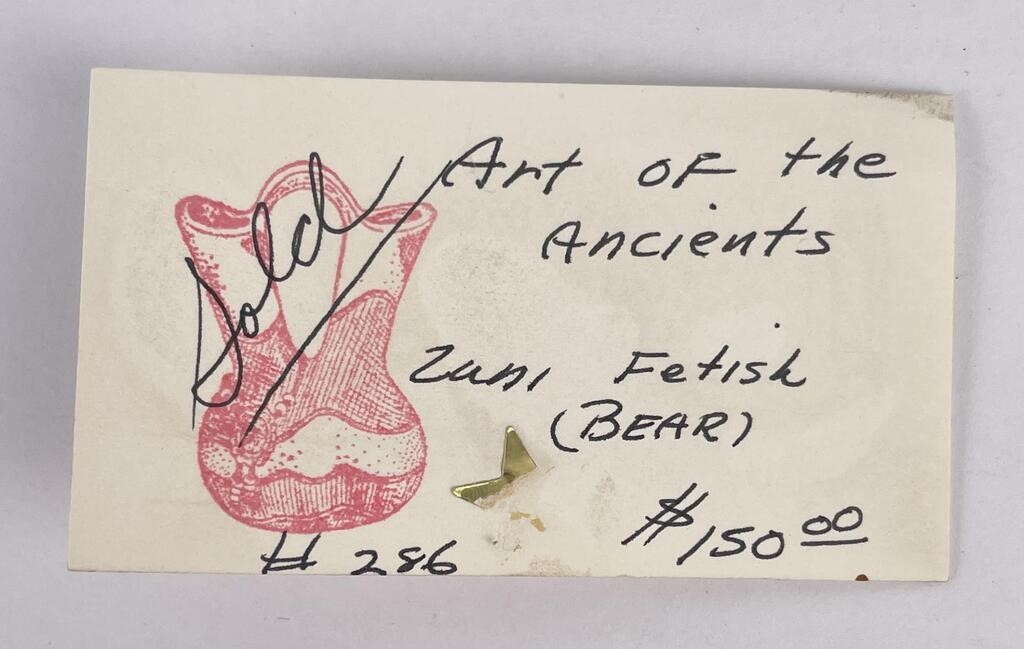 Sold
Art of the
Ancients
Zuni Fetish
(BEAR)
$150.00
# 286